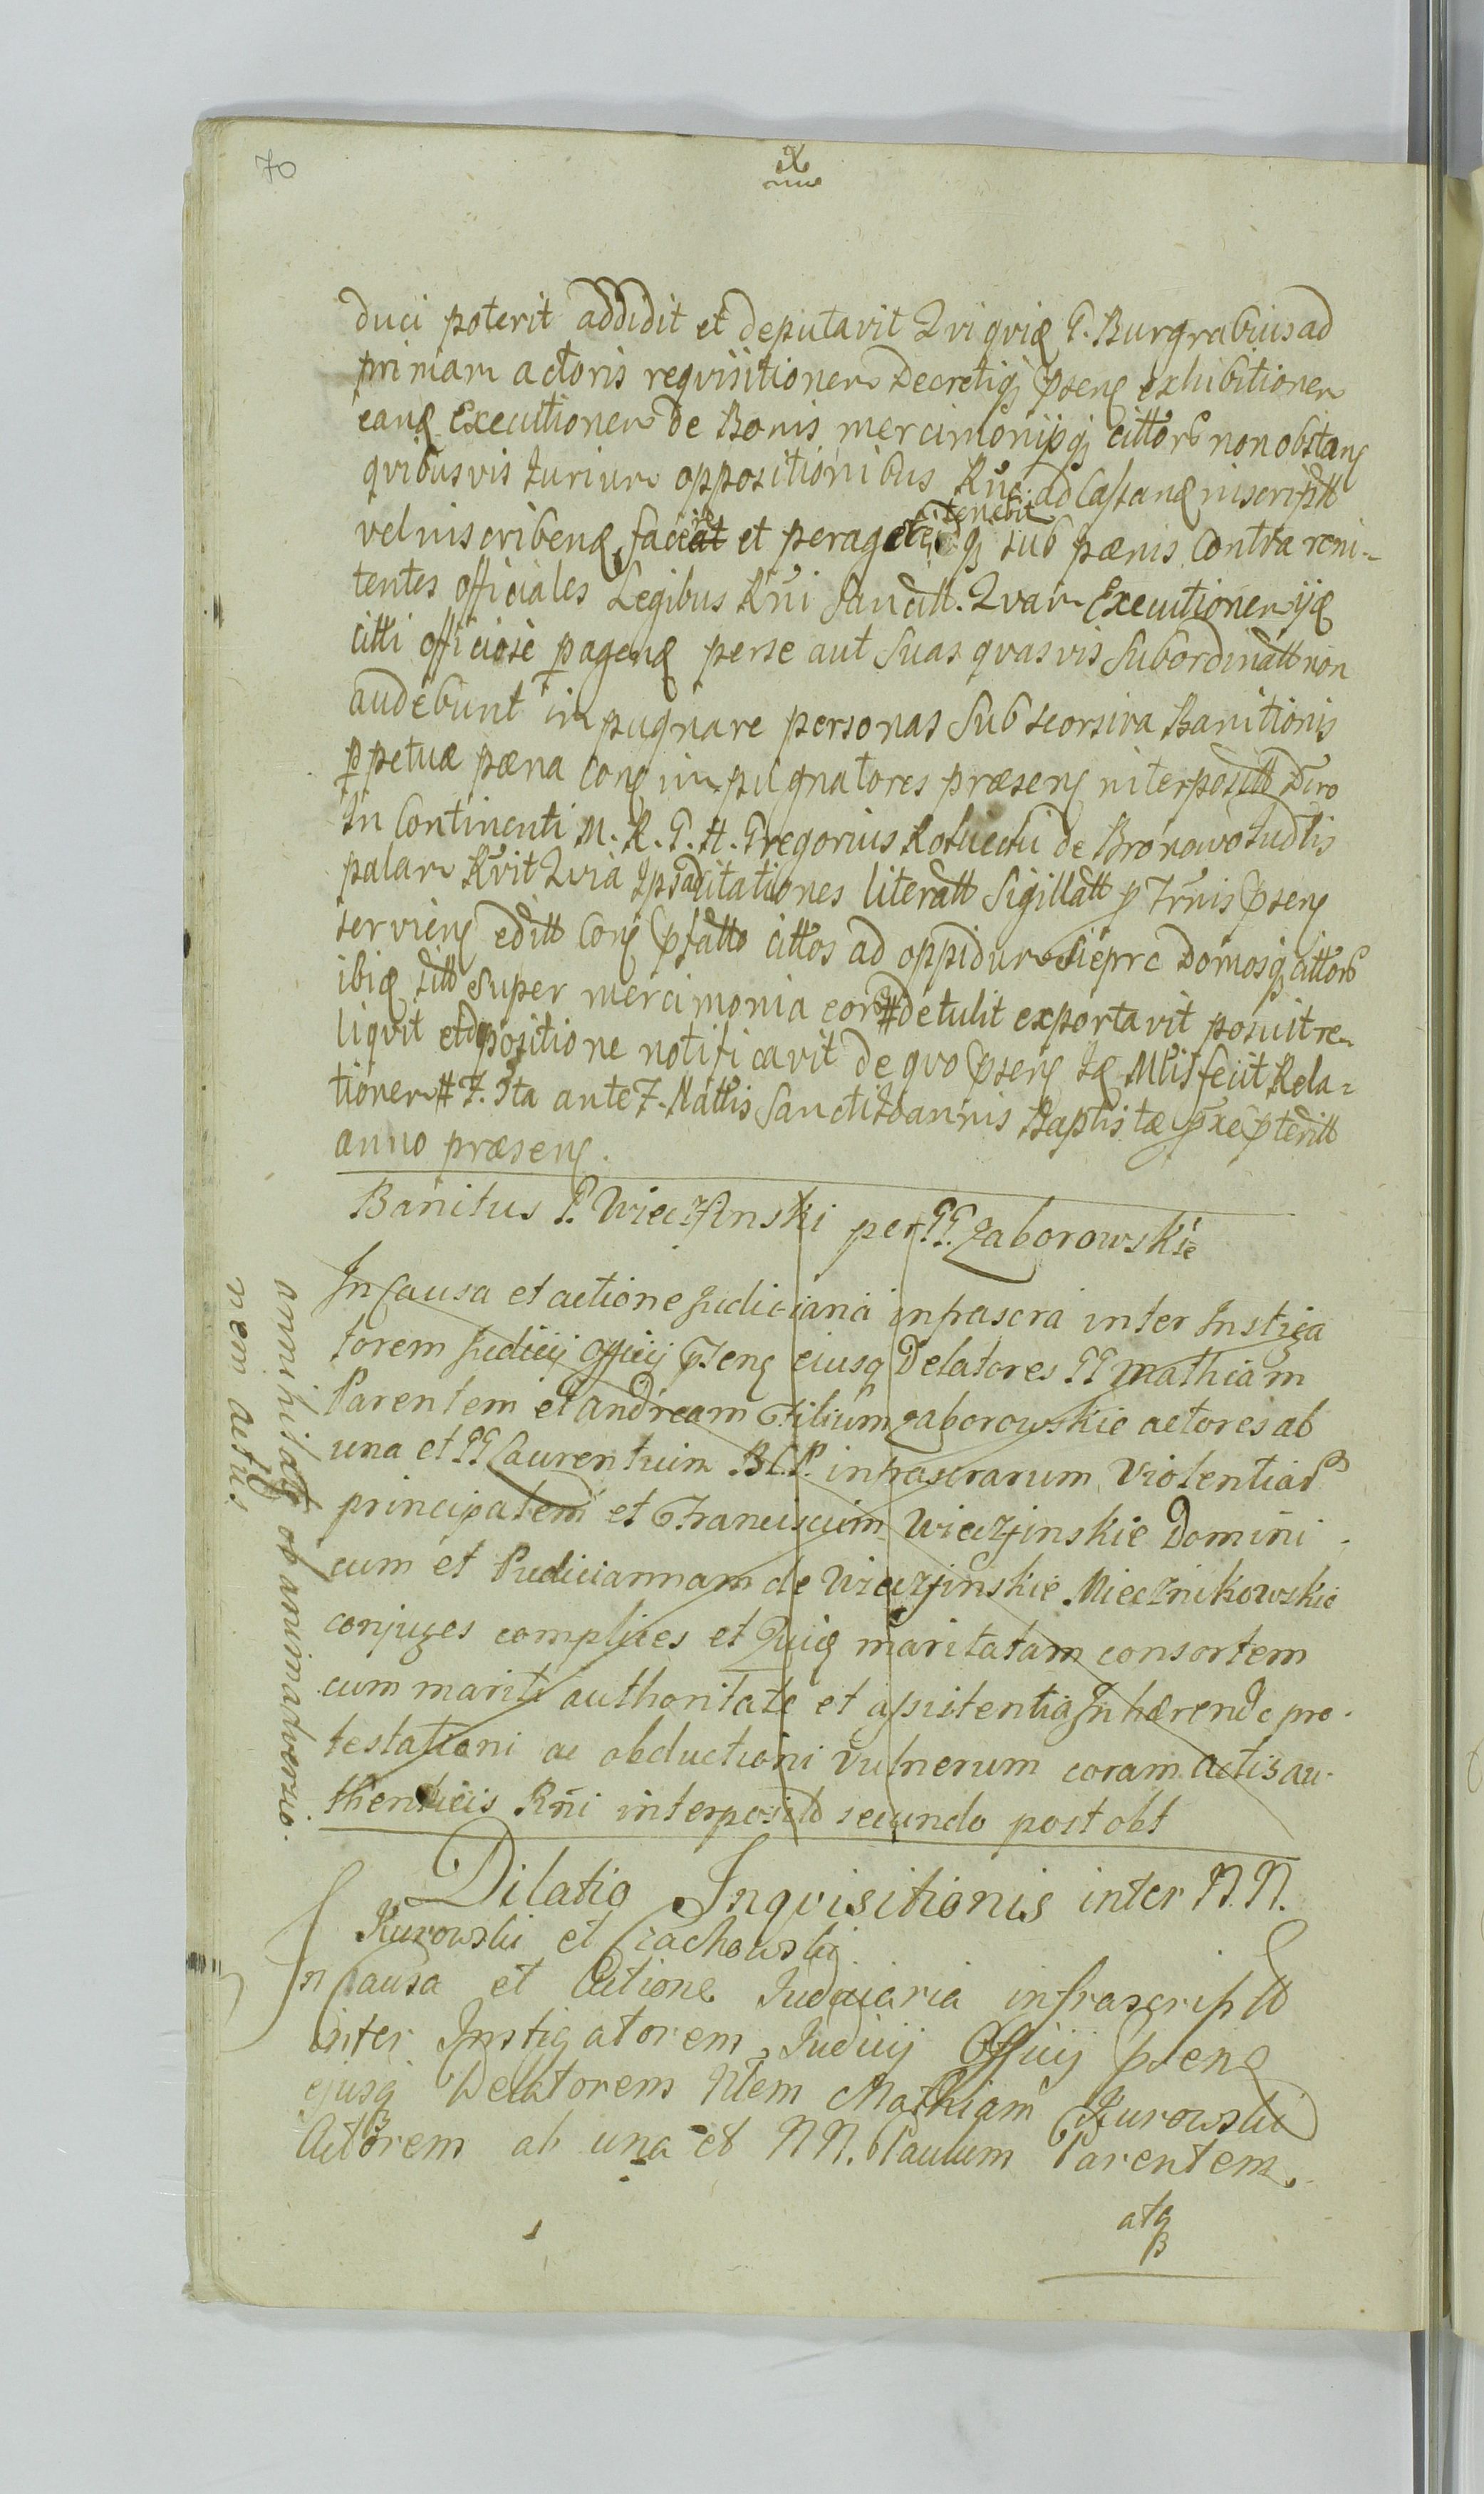 70
duci poterit addidit et deputavit Qui quidē G. Burgrabius ad
primam actoris requisitionem Decretiq; pñtis exhibitionem
eand Executionem de Bonis mercimonijsq; cittorū non obstan
quibusvis Iurium oppositionibus Rñe. ad Castand inscriptt
vel inscribend, faceret et perageret tenebit q; sub pænis contra reni-
tentes officiales Legibus Rñi Sancitt. Quam Executionem ijd
citti officiose pagend per se aut Suas quasvis Subordinatt non
audebunt impugnare personas Sub seorsiva Banitionis
ppetuæ pæna con impugnatores præsen interpositt Dcro
In Continenti M. R. G. H. Gregorius de Bronowo Iudlis
palam Rvit Quia Ipse citationes literatt Sigillatt Trmis psen
servien editt con pfatto cittos ad oppidum Siepre Domosq; cittorū
ibiq sitt Super mercimonia eor detulit exportavit posuit re-
liquit et de positione notificavit de quo psen Id Mlis fecit Rela-
tionem # F. 3ta ante F. Nattis Sancti Ioannis Baptistæ pxe pteritt
anno præsen.
Banitus G. Wieczfinski per GG. Zaborowskie
In Causa et actione Judiciana infrascra inter Instiga
torem Judicij Officij psen eiusq Delatores GG Mathiam
Parentem et Andream Filium Zaborowskie actores ab
una et GG Laurentium B.C.P. infrascrarum Violentiarū
principalem et Franciscum Wieczfinskie Domini
cum et Pudiciannam de Wieczfinskie Miecznikowskie
conjuges complices et Quidē maritatam consortem
cum mariti authoritate et assistentia Inhærendo pro-
testationi ac obductioni Vulnerum coram actis au-
thenticis Rñi interposittt secundo post obt
annihilatt ob animadversio-
nem actus.
Dilatio Inquisitionis inter N.N.
Kurowski et Ciachowski
In Causa et Actione Iudiciaria infrascriptt
inter Instigatorem Iudicij Officij psen
ejusq Delatorem Nlem Mathiam Kurowski
Actorem ab una et NN. Paulum Parentem
atq